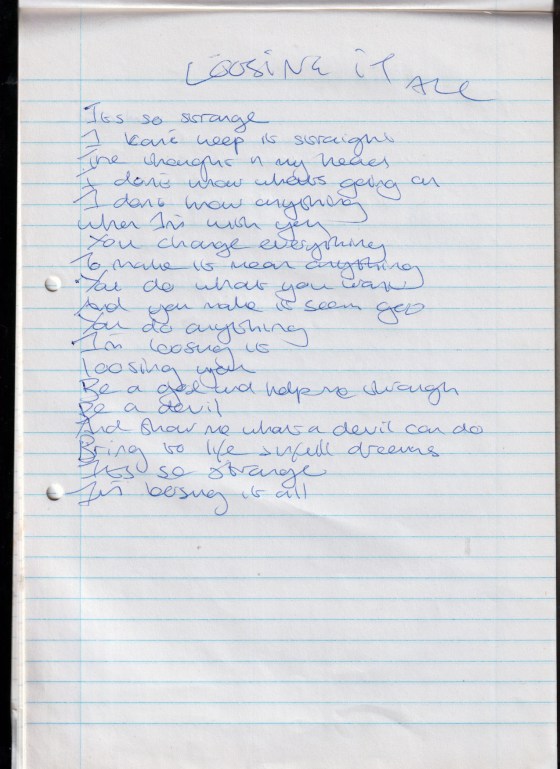 LOOSING iT ALL
It's so strange
I can't keep it straight
The thought n my head
I don't know what's going on
I don't know anything
when I'm with you
You change everything
To make it mean anything
You do what you want
And you make it seem
You do anything
I'm loosing it
loosing
Be a god and help me through
Be a devil
And show me what a devil can do
Bring to life sinfull dreams
It's so strange
I'm loosing it all